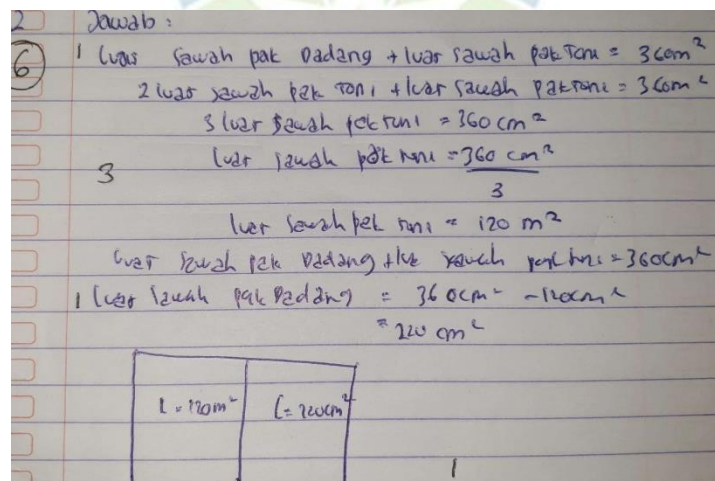 2 Jawab :
6 1 Luas sawah pak Dadang + luas sawah pak Toni = 360m²
2 luas sawah pak Toni + luas sawah pak Toni = 360m²
3 luas sawah pak toni = 360 cm²
3 luas sawah pak toni = 360 cm²
3
luas sawah pak toni = 120 m²
Luas sawah pak Dadang + luas sawah pak toni = 360cm²
1 Luas sawah pak Dadang = 360cm² - 120cm²
= 220 cm²
L = 120m² L = 220cm²
1